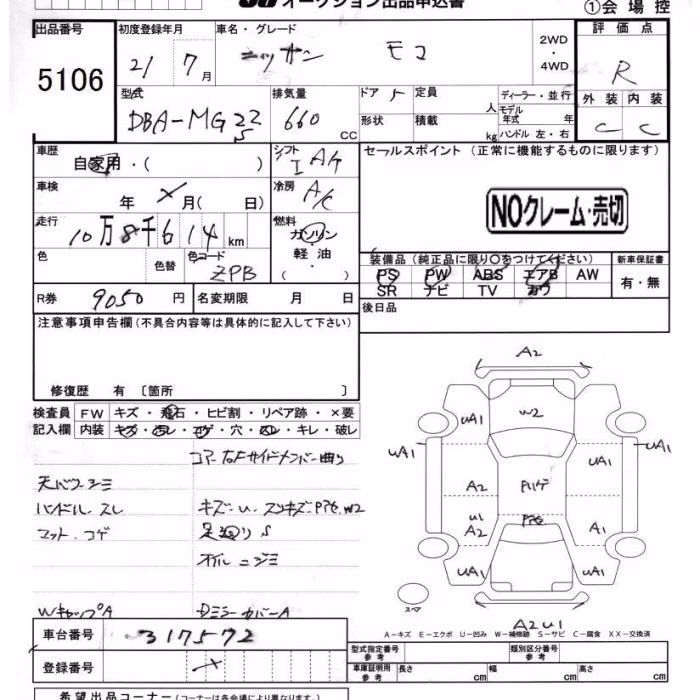 オークション出品申込書
①会場控
出品番号
5106
初度登録年月
21 7月
車名・グレード
ニッサン モコ
2WD・4WD
評価点
R
外装 内装
C C
型式
DBA-MG22S
排気量
660 CC
ドア 5
形状
定員 人
積載 kg
ディーラー・並行
モデル年式 年
ハンドル 左・右
車歴
自家用・( )
シフト
IAT
セールスポイント (正常に機能するものに限ります)
車検
年 月( 日)
冷房
A/C
NOクレーム・売切
走行
10万8千614km
燃料
ガソリン・軽油・( )
色
色替
色コード
ZPB
装備品 (純正品に限り○をつけてください)
新車保証書
PS PW ABS エアB AW
有・無
SR ナビ TV カワ
R券 9050円
名変期限 月 日
後日品
注意事項申告欄 (不具合内容等は具体的に記入して下さい)
修復歴 有 〔箇所 〕
検査員記入欄
FW キズ・飛石・ヒビ割・リペア跡・×要
内装 キズ・汚レ・コゲ・穴・スレ・キレ・破レ
コアー右Fサイドメンバー曲り
天バリシミ
ハンドル スレ
キズ・U. スリキズ. P76. W2
マット. コゲ
足廻りS
オイルニジミ
WキャップA
DミラーカバーA
A2
UA1 W2 UA1
UA1 UA1
A2 P11ゲ UA1
U1 P76 A1
UA1 UA1
スペア
A2U1
A-キズ E-エクボ U-凹み W-補修跡 S-サビ C-腐食 XX-交換済
車台番号
317572
登録番号
型式指定番号 参考
類別区分番号 参考
車庫証明用 参考
長さ cm
幅 cm
高さ cm
希望出品コーナー (コーナーは各会場により異なります。)